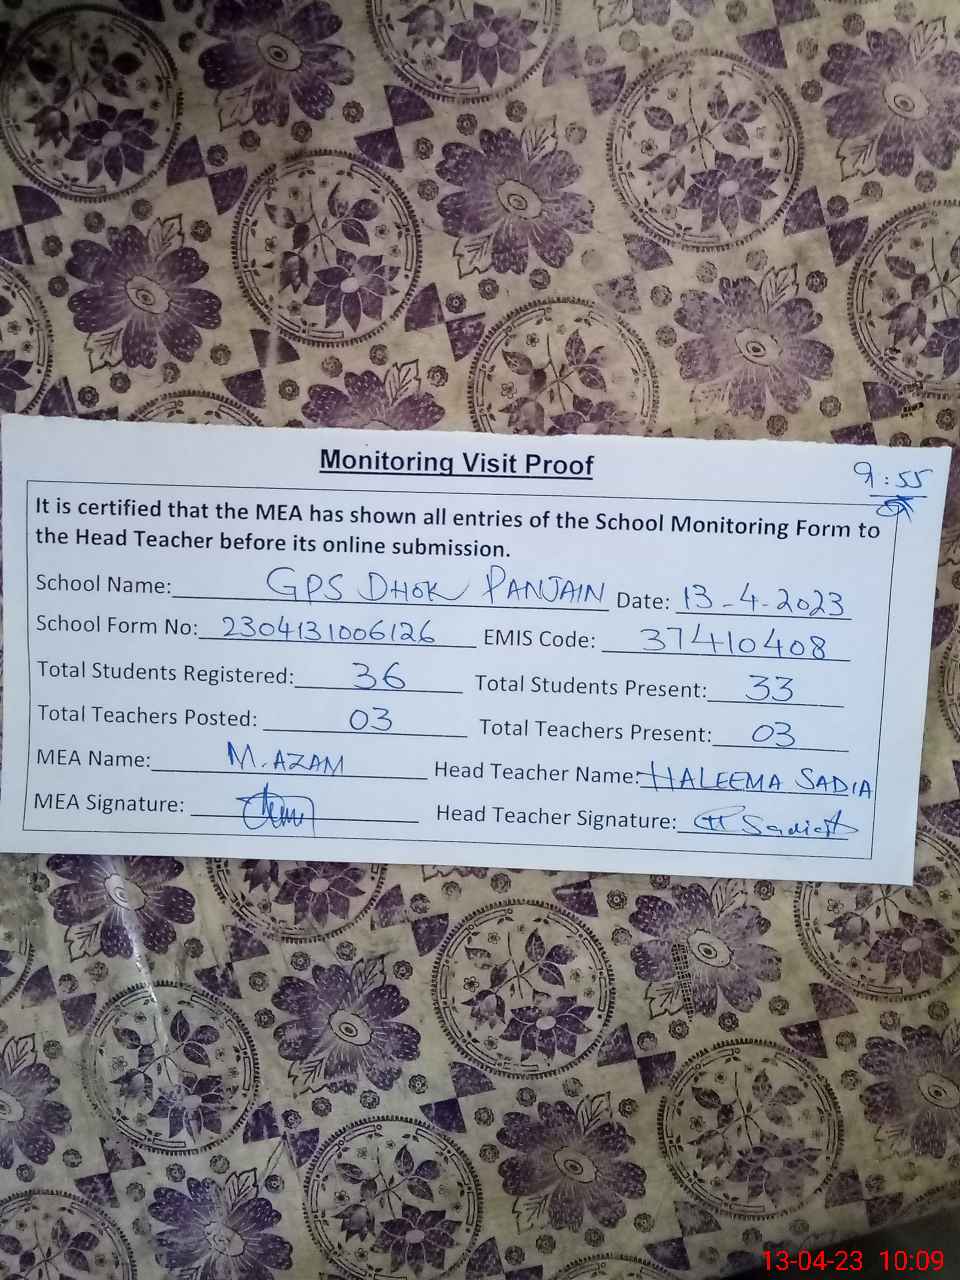 Monitoring Visit Proof
9:55
It is certified that the MEA has shown all entries of the School Monitoring Form to
the Head Teacher before its online submission.
School Name: GPS DHOK PANJAIN Date: 13-4-2023
School Form No: 2304131006126 EMIS Code: 37410408
Total Students Registered: 36 Total Students Present: 33
Total Teachers Posted: 03 Total Teachers Present: 03
MEA Name: M.AZAM Head Teacher Name: HALEEMA SADIA
MEA Signature: Head Teacher Signature: Sadia
13-04-23 10:09